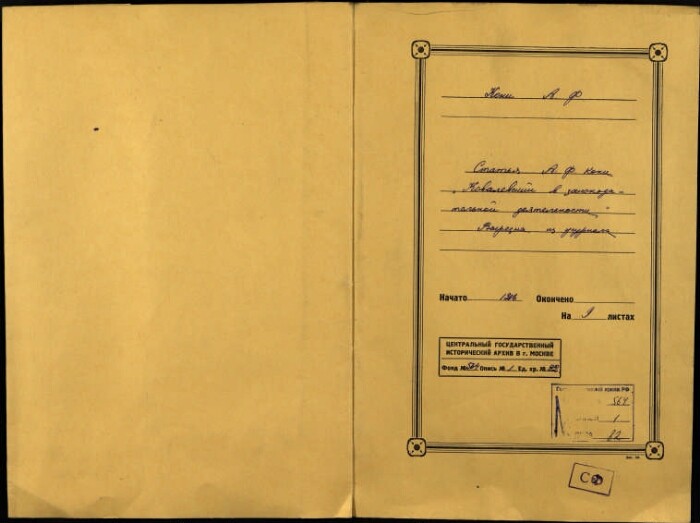 Кони А Ф
Статья А Ф Кони
"Ковалевский в законода-
тельной деятельности"
Вырезка из журнала
Начато Окончено
На 9 листах
ЦЕНТРАЛЬНЫЙ ГОСУДАРСТВЕННЫЙ
ИСТОРИЧЕСКИЙ АРХИВ В г. МОСКВЕ
Фонд № Опись № 1 Ед. хр. №
архив РФ
564
1
82
СФ